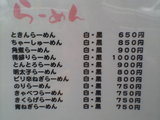 らーめん
ときんらーめん 白・黒 650円
ちゃーしゅーめん 白・黒 850円
角煮らーめん 白・黒 900円
特盛りらーめん 白・黒 1000円
とんとろらーめん 白・黒 800円
明太子らーめん 白・黒 800円
ピリ辛ねぎらーめん 白・黒 800円
のりらーめん 白・黒 750円
キャベツらーめん 白・黒 750円
きくらげらーめん 白・黒 750円
青ねぎらーめん 白・黒 750円